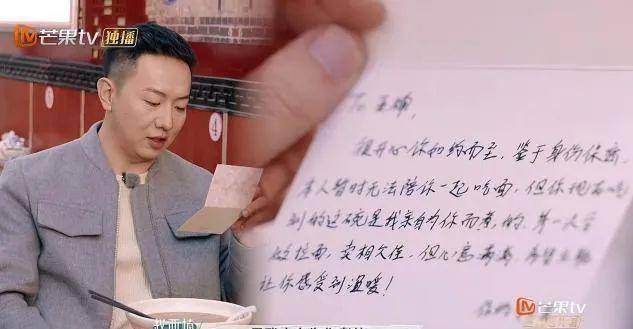 芒果tv 独播
④
亚坤,
很开心你如约而至, 鉴于身份保密,
本人暂时无法陪你一起吃面, 但你现在吃
到的这碗是我亲自为你而煮的, 第一次学
做拉面, 卖相欠佳, 但心意满满, 希望
让你感受到温暖!
芒果tv